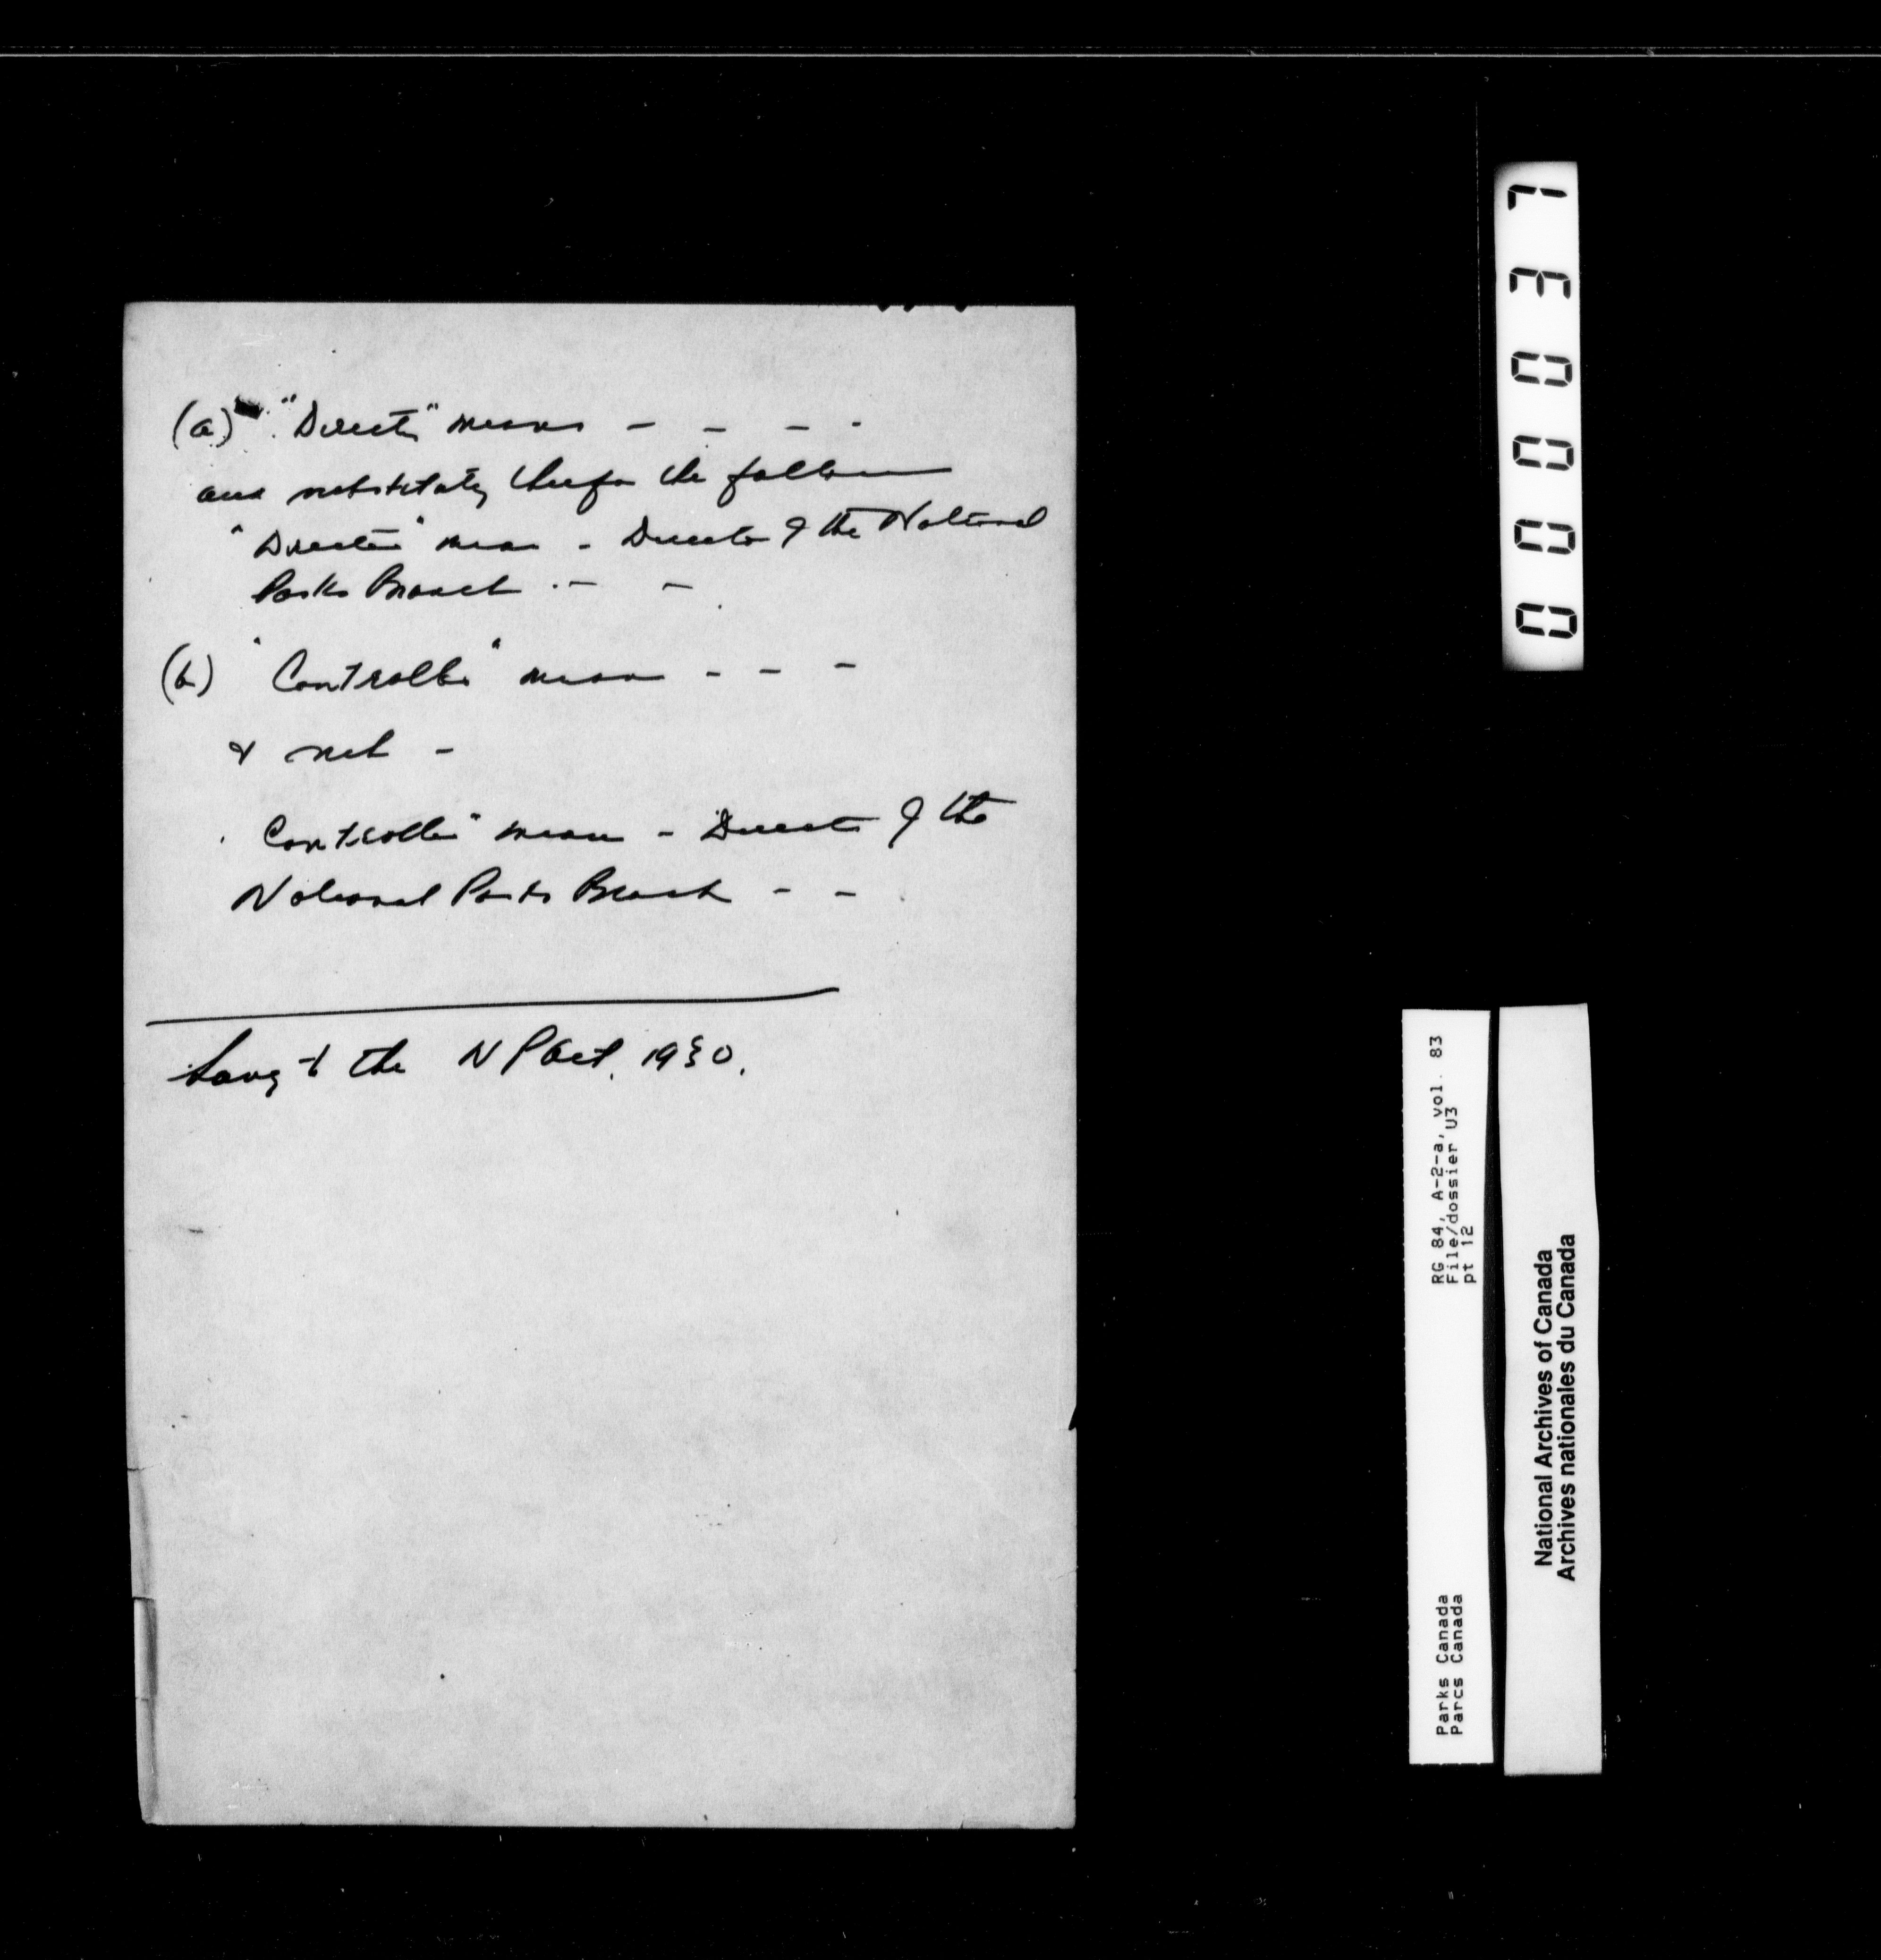 (a) "Director" means - - - -
and substituting therefor the following
"Director" means - Director of the National
Parks Branch - -
(b) "Controller" means - - -
& sub -
"Controller" means - Director of the
National Parks Branch - -
the N P Act. 1930.
000037
RG 84, A-2-a, vol. 83
File/dossier U3
pt 12
Parks Canada
Parcs Canada
National Archives of Canada
Archives nationales du Canada